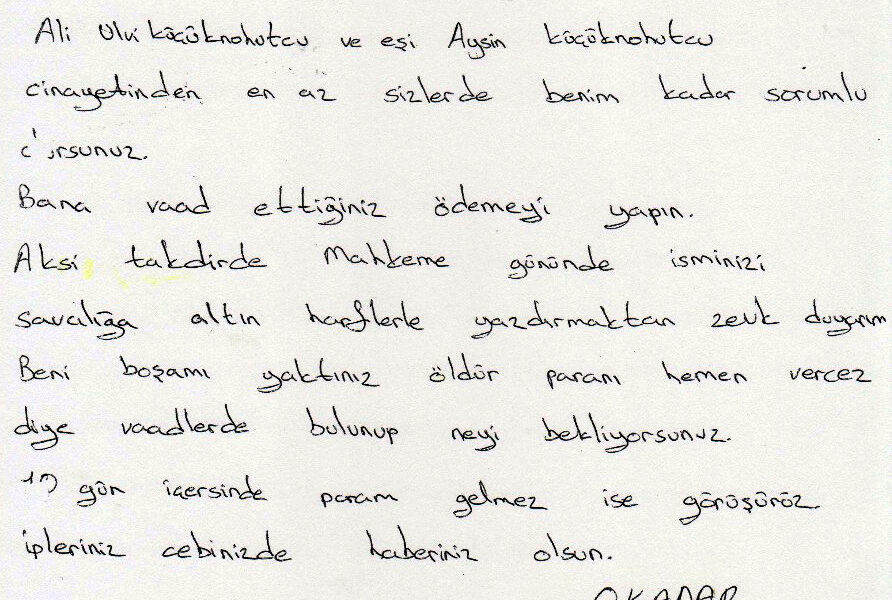 Ali Ulvi küçüknohutcu ve eşi Aysin küçüknohutcu
cinayetinden en az sizlerde benim kadar sorumlu
Bana vaad ettiğiniz ödemeyi yapın.
Aksi takdirde Mahkeme gününde isminizi
savcılığa altın harflerle yazdırmaktan zevk duyarım
Beni boşamı yaktınız öldür paranı hemen vercez
diye vaadlerde bulunup neyi bekliyorsunuz.
gün içersinde param gelmez ise görüşürüz.
ipleriniz cebinizde haberiniz olsun.